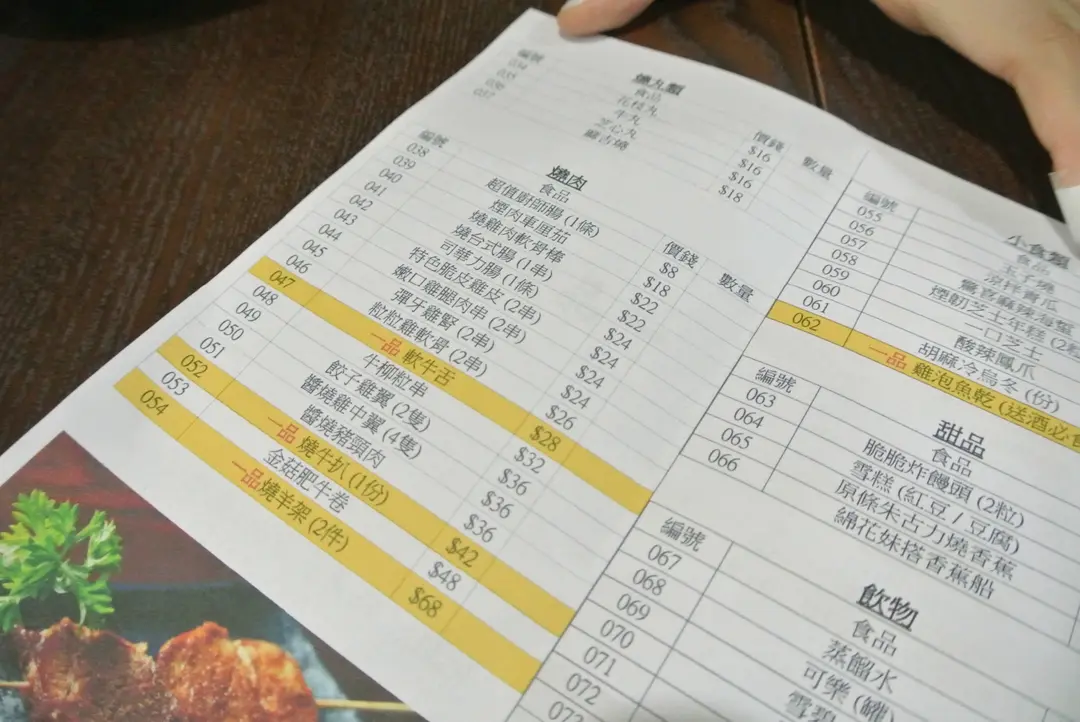 燒丸類
編號 食品 價錢 數量
034 花枝丸 $16
035 牛丸 $16
036 芝心丸 $16
037 $18
燒肉
編號 食品 價錢 數量
038 超值廚師腸 (1條) $8
039 煙肉車厘茄 $18
040 燒雞肉軟骨棒 $22
041 燒台式腸 (1串) $22
042 司華力腸 (1條) $24
043 特色脆皮雞皮 (2串) $24
044 嫩口雞腿肉串 (2串) $24
045 彈牙雞腎 (2串) $24
046 粒粒雞軟骨 (2串) $26
047 一品 軟牛舌 $28
048 牛柳粒串 $32
049 餃子雞翼 (2隻) $36
050 醬燒雞中翼 (4隻) $36
051 醬燒豬頸肉 $36
052 一品 燒牛扒 (1份) $42
053 金菇肥牛卷 $48
054 一品燒羊架 (2件) $68
小食類
編號 食品
055 玉子燒
056 涼拌青瓜
057 驚喜麻辣
058 煙韌芝士年糕 (2粒
059 一口芝士
060 酸辣鳳爪
061 胡麻冷烏冬 (份)
062 一品 雞泡魚乾 (送酒必食
甜品
編號 食品
063 脆脆炸饅頭 (2粒)
064 雪糕 (紅豆 / 豆腐)
065 原條朱古力燒香蕉
066 綿花妹搭香蕉船
飲物
編號 食品
067 蒸餾水
068 可樂 (罐
069 雪碧
070
071
072
073